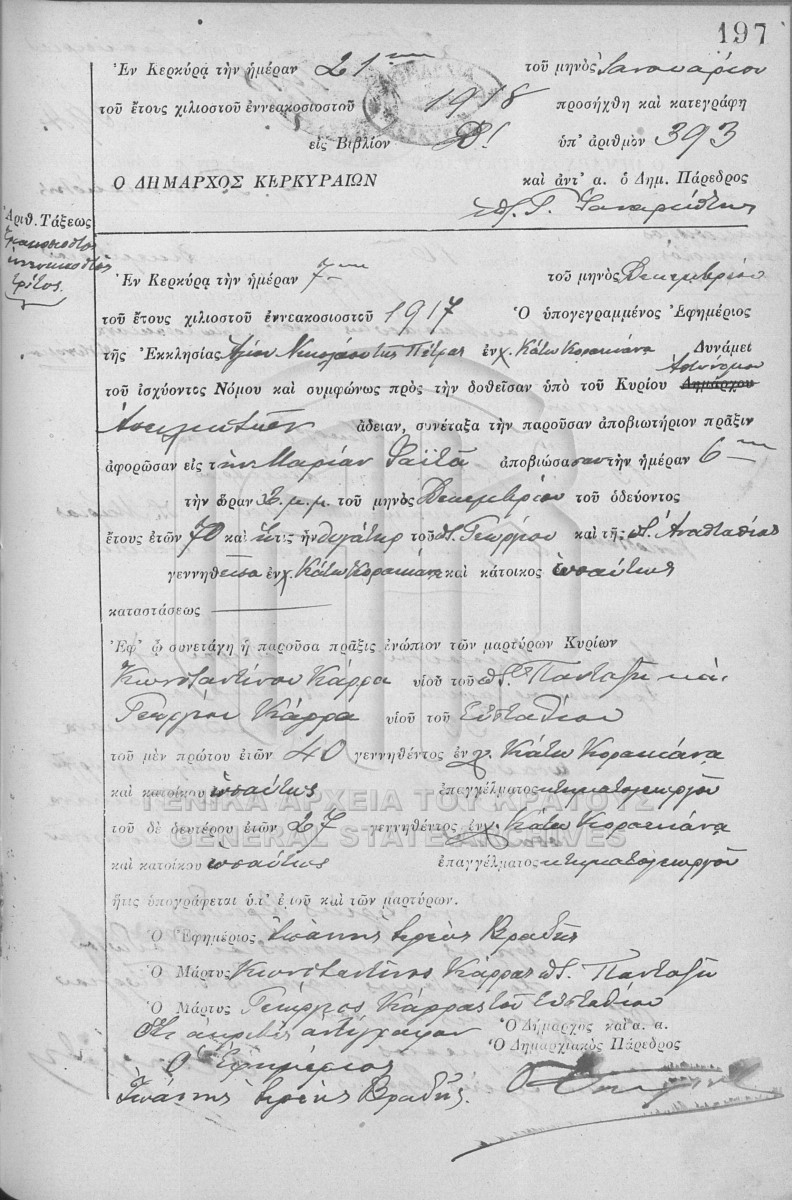 197
Ἐν Κερκύρᾳ τὴν ἡμέραν 21ην τοῦ μηνὸς Ἰανουαρίου
τοῦ ἔτους χιλιοστοῦ ἐννεακοσιοστοῦ 1918 προσήχθη καὶ κατεγράφη
εἰς Βιβλίον Β! ὑπ' ἀριθμὸν 393
Ο ΔΗΜΑΡΧΟΣ ΚΕΡΚΥΡΑΙΩΝ καὶ ἀντ' α. ὁ Δημ. Πάρεδρος
Ἀριθ. Τάξεως
τριακοσιοστὸς
ἐννενηκοστὸς
τρίτος.
Ἐν Κερκύρᾳ τὴν ἡμέραν 7ην τοῦ μηνὸς Δεκεμβρίου
τοῦ ἔτους χιλιοστοῦ ἐννεακοσιοστοῦ 1917 Ὁ ὑπογεγραμμένος Ἐφημέριος
τῆς Ἐκκλησίας Ἁγίου Νικολάου τῆς Πέτρας ἐν χ. Κάτω Κορακιάνα Δυνάμει
τοῦ ἰσχύοντος Νόμου καὶ συμφώνως πρὸς τὴν δοθεῖσαν ὑπὸ τοῦ Κυρίου Δημάρχου Ἀστυνόμου
ἄδειαν, συνέταξα τὴν παροῦσαν ἀποβιωτήριον πρᾶξιν
ἀφορῶσαν εἰς τὴν Μαρίαν Φαϊτᾶ ἀποβιώσασαν τὴν ἡμέραν 6ην
τὴν ὥραν 3 μ.μ. τοῦ μηνὸς Δεκεμβρίου τοῦ ὁδεύοντος
ἔτους ἐτῶν 70 καὶ ἥτις ἦν θυγάτηρ τοῦ π. Γεωργίου καὶ τῆς π. Ἀναστασίας
γεννηθεῖσα ἐν χ. Κάτω Κορακιάνα καὶ κάτοικος ὡσαύτως
καταστάσεως
Ἐφ' ᾧ συνετάγη ἡ παροῦσα πρᾶξις ἐνώπιον τῶν μαρτύρων Κυρίων
Κωνσταντίνου Κάρρα υἱοῦ τοῦ π. Πανταζῆ καὶ
Γεωργίου Κάρρα υἱοῦ τοῦ Εὐσταθίου
τοῦ μὲν πρώτου ἐτῶν 40 γεννηθέντος ἐν χ. Κάτω Κορακιάνα
καὶ κατοίκου ὡσαύτως ἐπαγγέλματος κτηματογεωργοῦ
ΓΕΝΙΚΑ ΑΡΧΕΙΑ ΤΟΥ ΚΡΑΤΟΥΣ
τοῦ δὲ δευτέρου ἐτῶν 27 γεννηθέντος ἐν χ. Κάτω Κορακιάνα
GENERAL STATE ARCHIVES
καὶ κατοίκου ὡσαύτως ἐπαγγέλματος κτηματογεωργοῦ
ἥτις ὑπογράφεται ὑπ' ἐμοῦ καὶ τῶν μαρτύρων.
Ὁ Ἐφημέριος Ἰωάννης ἱερεὺς Βραδῆς
Ὁ Μάρτυς Κωνσταντῖνος Κάρρας π. Πανταζῆ
Ὁ Μάρτυς Γεώργιος Κάρρας τοῦ Εὐσταθίου
Ὅτι ἀκριβὲς ἀντίγραφον Ὁ Δήμαρχος καὶ α. α.
Ὁ Ἐφημέριος Ὁ Δημαρχιακὸς Πάρεδρος
Ἰωάννης ἱερεὺς Βραδῆς.